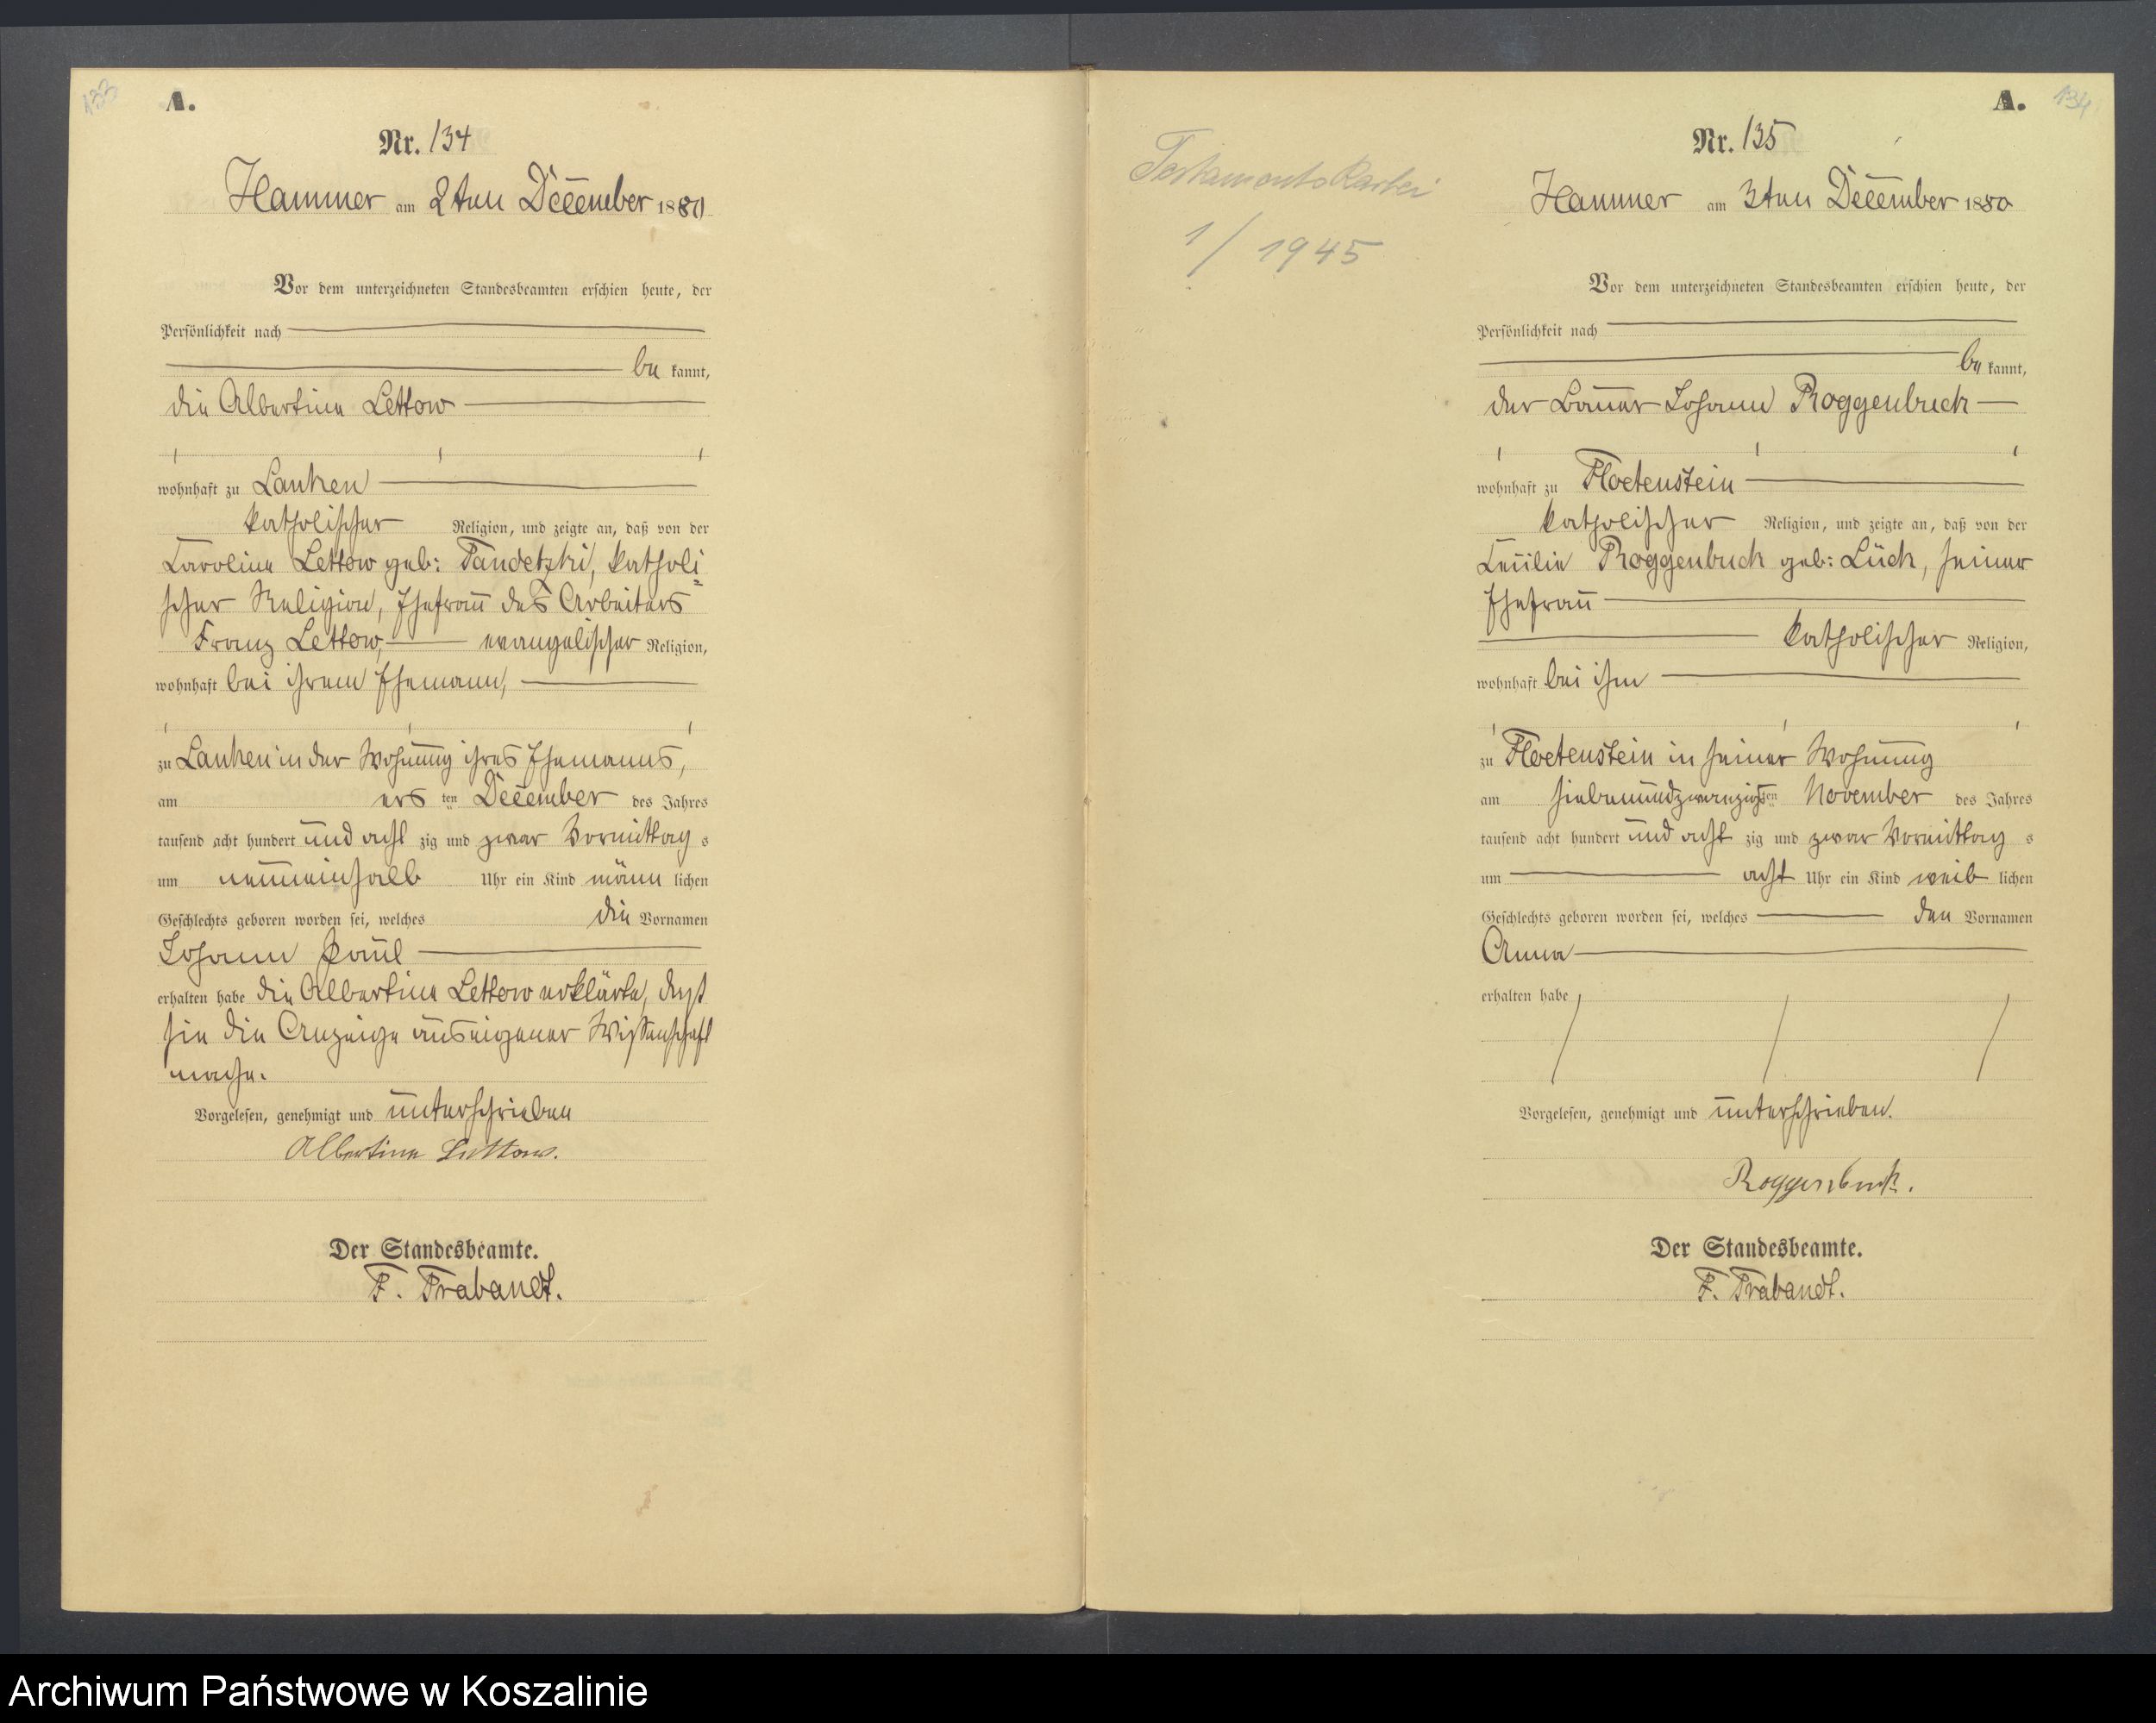 133
A.
Nr. 134
Hammer am 2ten December 1880
Vor dem unterzeichneten Standesbeamten erschien heute, der
Persönlichkeit nach
be kannt,
die Albertine Lettow
wohnhaft zu Lanken
katholischer Religion, und zeigte an, daß von der
Caroline Lettow geb: Pandetzki, katholi=
scher Religion, Ehefrau des Arbeiters
Franz Lettow, evangelischer Religion,
wohnhaft bei ihrem Ehemann,
zu Lanken in der Wohnung ihres Ehemanns,
am ers ten December des Jahres
tausend acht hundert und acht zig und zwar Vormittag s
um neuneinhalb Uhr ein Kind männ lichen
Geschlechts geboren worden sei, welches die Vornamen
Johann Paul
erhalten habe die Albertine Lettow erklärte, daß
sie die Anzeige aus eigener Wissenschaft
mache.
Vorgelesen, genehmigt und unterschrieben
Albertine Lettow.
Der Standesbeamte.
F. Trabandt.
Testaments Kartei
1/1945
A.
134
Nr. 135
Hammer am 3ten December 1880
Vor dem unterzeichneten Standesbeamten erschien heute, der
Persönlichkeit nach
be kannt,
der Bauer Johann Roggenbuck
wohnhaft zu Floetenstein
katholischer Religion, und zeigte an, daß von der
Cecilie Roggenbuck geb: Lück, seiner
Ehefrau
katholischer Religion,
wohnhaft bei ihm
zu Floetenstein in seiner Wohnung
am siebenundzwanzigsten November des Jahres
tausend acht hundert und acht zig und zwar Vormittag s
um acht Uhr ein Kind weib lichen
Geschlechts geboren worden sei, welches den Vornamen
Anna
erhalten habe
Vorgelesen, genehmigt und unterschrieben.
Roggenbuck.
Der Standesbeamte.
F. Trabandt.
Archiwum Państwowe w Koszalinie